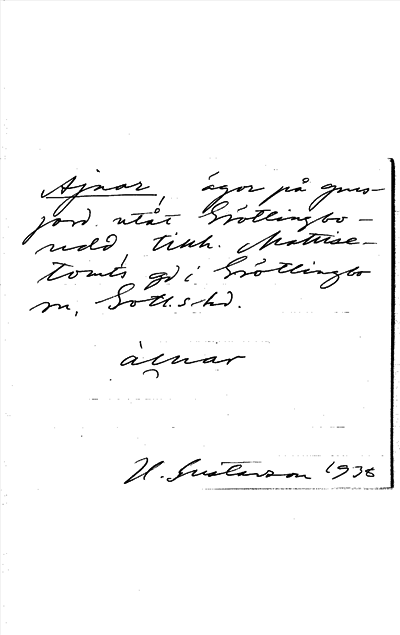 Ajnar, ägor på grus-
jord utåt Grötlingbo-
udd, tillh. Mattise-
tomts gd i Grötlingbo
sn, Gotl.s hd.
ái̯nar
H. Gustavson 1938